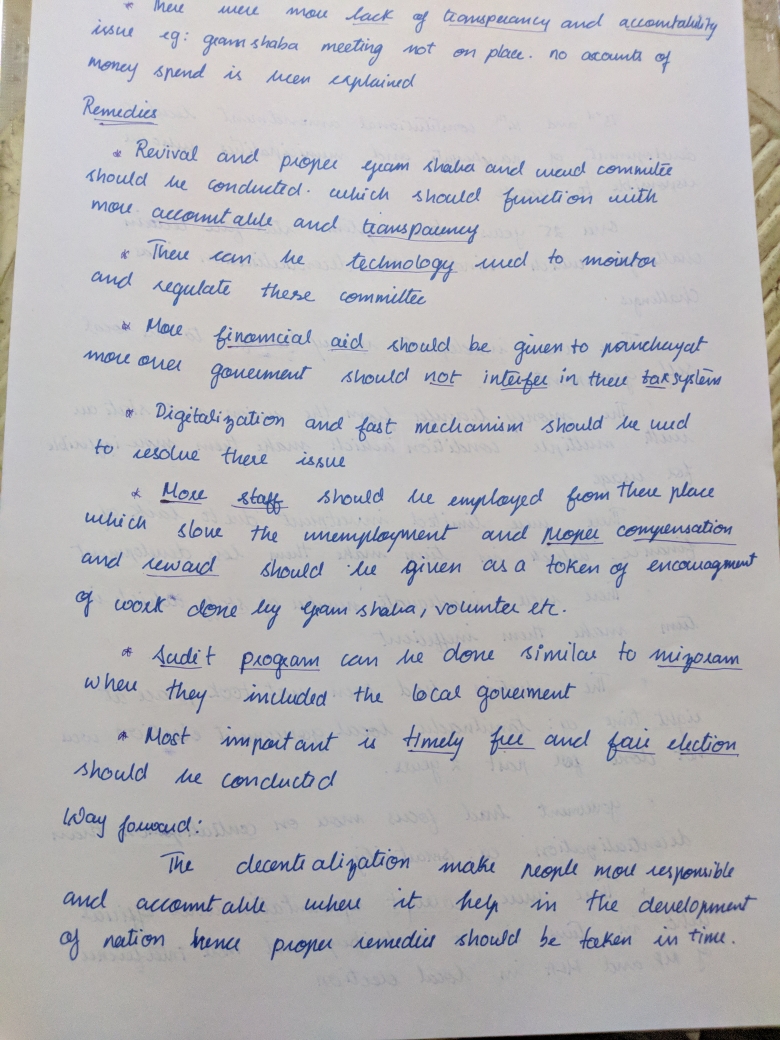 * There were more lack of transperancy and accountability
issue eg: gram shaba meeting not on place. no accounts of
money spend is been explained
Remedies
* Revival and proper gram shaba and ward commitee
should be conducted. which should function with
more accountable and transparency
* There can be technology used to monitor
and regulate these committee
* More financial aid should be given to panchayat
more over goverment should not interfer in there tax system
* Digitalization and fast mechanism should be used
to resolve there issue
* More staff should be employed from there place
which slove the unemployment and proper compensation
and reward should be given as a token of encouragment
of work done by gram shaba, volunter etc.
* Audit program can be done similar to mizoram
where they included the local goverment
* Most important is timely free and fair election
should be conducted
Way forward:
The decentralization make people more responsible
and accountable where it help in the development
of nation hence proper remedies should be taken in time.